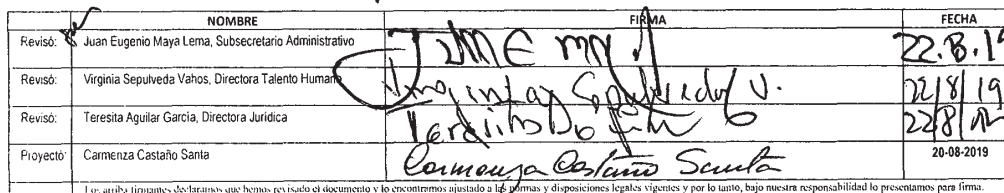 NOMBRE FIRMA FECHA
Revisó: Juan Eugenio Maya Lema, Subsecretario Administrativo 22.8.19
Revisó: Virginia Sepulveda Vahos, Directora Talento Humano Virginia Sepulveda V. 22/8/19
Revisó: Teresita Aguilar García, Directora Jurídica 22/8/
Proyectó: Carmenza Castaño Santa Carmenza Castaño Santa 20-08-2019
Los arriba firmantes declaramos que hemos revisado el documento y lo encontramos ajustado a las normas y disposiciones legales vigentes y por lo tanto, bajo nuestra responsabilidad lo presentamos para firma.